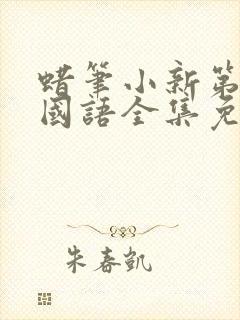 蜡筆小新第
國語全集免
朱春凯